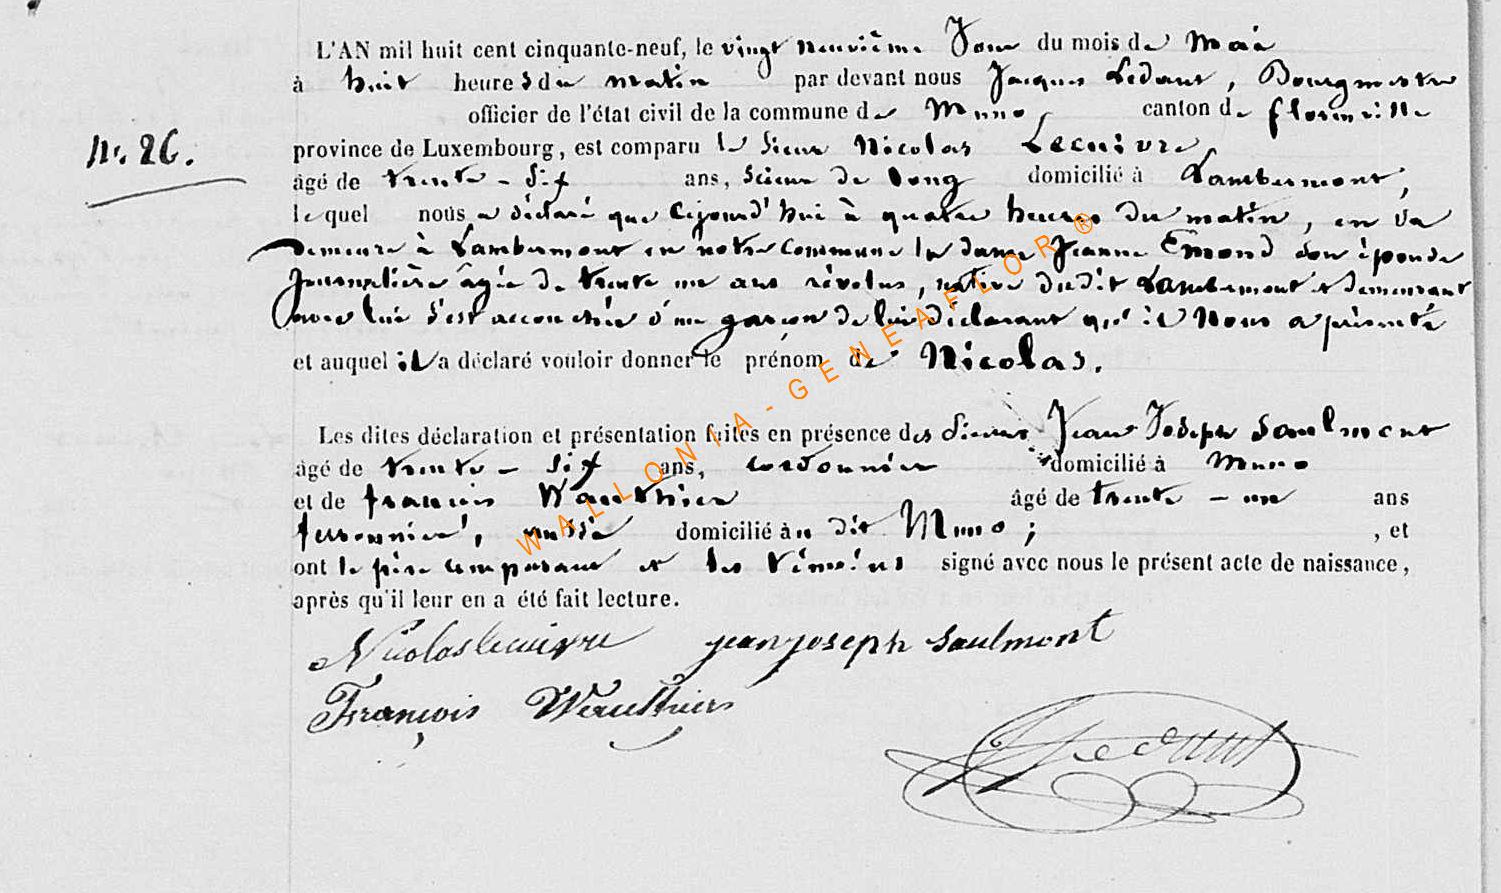 L'AN mil huit cent cinquante-neuf, le vingt neuvième Jour du mois de Mai
à huit heures du matin par devant nous Jacques Ledant, Bourgmestre
officier de l'état civil de la commune de Muno canton de florenville
N°. 26.
province de Luxembourg, est comparu le Sieur Nicolas Lecuivre
âgé de trente-six ans, scieur de long domicilié à Lambermont,
lequel nous a déclaré que cejourd'hui à quatre heures du matin, en sa
demeure à Lambermont en notre commune la dame Jeanne Emond son épouse
journalière âgée de trente un ans révolus, native dudit Lambermont et demeurant
avec lui s'est accouchée d'un garçon de lui déclarant qu'il Nous a présenté
et auquel il a déclaré vouloir donner le prénom de Nicolas.
Les dites déclaration et présentation faites en présence des Sieurs Jean Joseph Saulmont
âgé de trente-six ans, cordonnier domicilié à Muno
et de françois Wauthier âgé de trente-un ans
aussi domicilié au dit Muno ; , et
ont le père comparant et les témoins signé avec nous le présent acte de naissance,
après qu'il leur en a été fait lecture.
Nicolas lecuivre jean joseph Saulmont
François Wauthier
Ledant
WALLONIA-GENEAFLOR ®